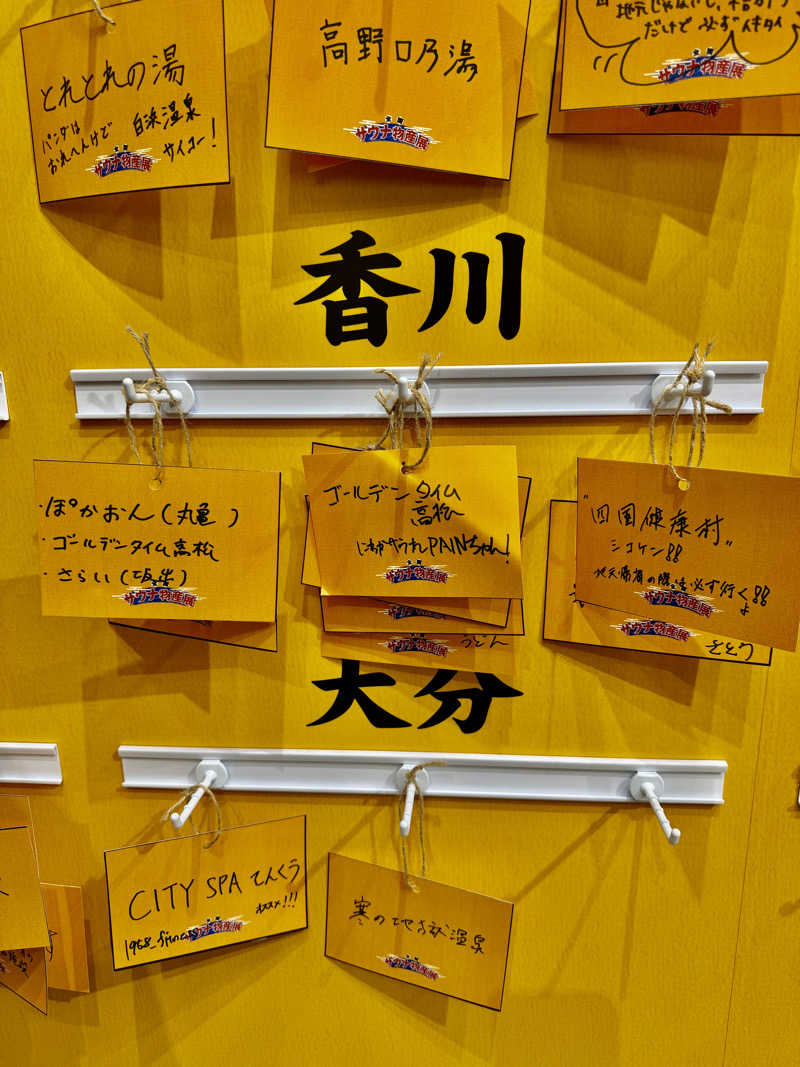 とれとれの湯
パンダは
おれへんけど
白浜温泉
サイコー!
全国
サウナ物産展
高野口乃湯
全国
サウナ物産展
地元じゃないし、
だけど 必ず イキタイ
全国
サウナ物産展
サウナ物産展
香川
・ぽかおん(丸亀)
・ゴールデンタイム高松
・さらい(坂出)
サウナ物産展
ゴールデンタイム
高松
PAINちゃん!
全国
サウナ物産展
サウナ物産展
全国
サウナ物産展
うどん
"四国健康村"
シコケン!!
必ず行く!!
よ
サウナ物産展
全国
サウナ物産展
大分
CITY SPA てんくう
オススメ!!!
全国
サウナ物産展
寒の地獄温泉
全国
サウナ物産展